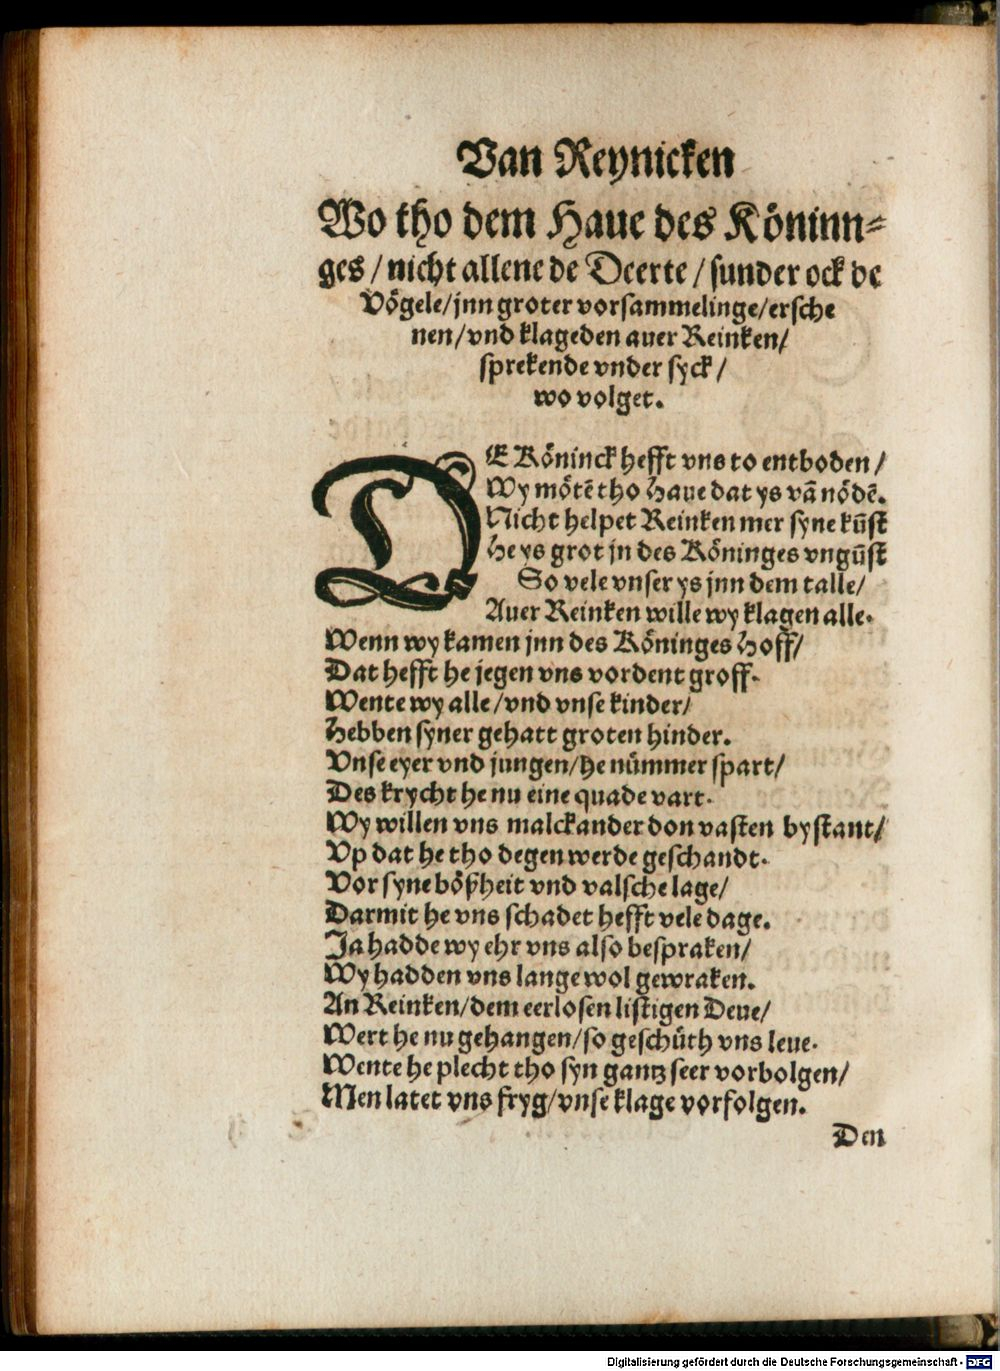 Van Reynicken
Wo tho dem Haue des Köninn⸗
ges / nicht allene de Deerte / sunder ock de
Vögele/ jnn groter vorsammelinge/ ersche
nen/ vnd klageden auer Reinken/
sprekende vnder syck /
wo volget.
DE Köninck hefft vns to entboden /
Wy mötẽ tho Haue dat ys vã nödẽ.
Nicht helpet Reinken mer syne kũst
He ys grot jn des Köninges vngũst
So vele vnser ys jnn dem talle/
Auer Reinken wille wy klagen alle.
Wenn wy kamen jnn des Köninges Hoff/
Dat hefft he jegen vns vordent groff.
Wente wy alle/ vnd vnse kinder/
Hebben syner gehatt groten hinder.
Vnse eyer vnd jungen/ he nümmer spart/
Des krycht he nu eine quade vart.
Wy willen vns malckander don vasten bystant/
Vp dat he tho degen werde geschandt.
Vor syne bößheit vnd valsche lage/
Darmit he vns schadet hefft vele dage.
Ja hadde wy ehr vns also bespraken/
Wy hadden vns lange wol gewraken.
An Reinken/ dem eerlosen listigen Deue/
Wert he nu gehangen/ so geschüth vns leue.
Wente he plecht tho syn gantz seer vorbolgen/
Men latet vns fryg/ vnse klage vorfolgen.
Den
Digitalisierung gefördert durch die Deutsche Forschungsgemeinschaft - DFG